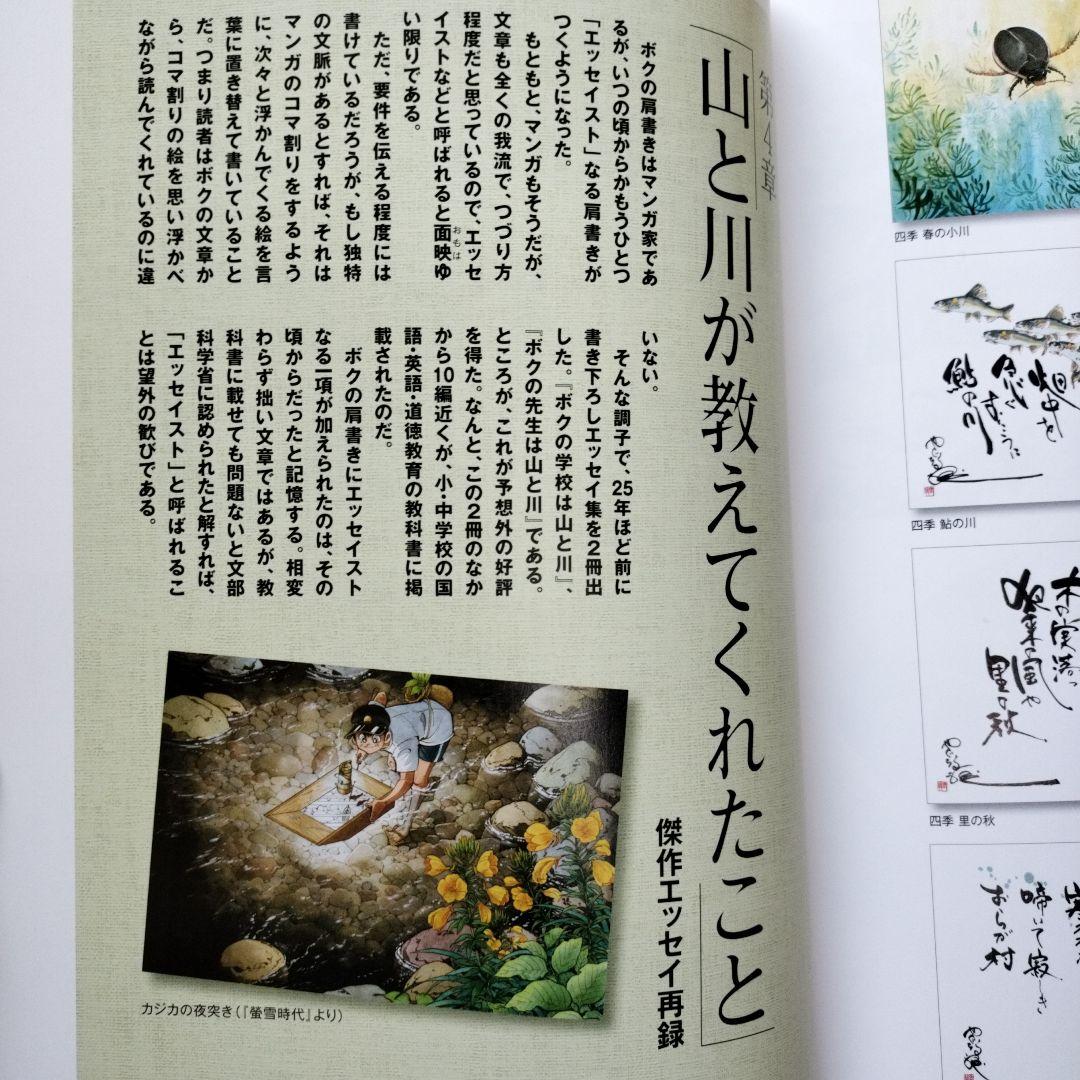 第4章
山と川が教えてくれたこと
傑作エッセイ再録
ボクの肩書きはマンガ家であ
るが、いつの頃からかもうひとつ
「エッセイスト」なる肩書きが
つくようになった。
もともと、マンガもそうだが、
文章も全くの我流で、つづり方
程度だと思っているので、エッセ
イストなどと呼ばれると面映ゆ
おもは
い限りである。
ただ、要件を伝える程度には
書けているだろうが、もし独特
の文脈があるとすれば、それは
マンガのコマ割りをするよう
に、次々と浮かんでくる絵を言
葉に置き替えて書いていること
だ。つまり読者はボクの文章か
ら、コマ割りの絵を思い浮かべ
ながら読んでくれているのに違
いない。
そんな調子で、25年ほど前に
書き下ろしエッセイ集を2冊出
した。『ボクの学校は山と川』、
『ボクの先生は山と川』である。
ところが、これが予想外の好評
を得た。なんと、この2冊のなか
から10編近くが、小・中学校の国
語・英語・道徳教育の教科書に掲
載されたのだ。
ボクの肩書きにエッセイスト
なる一項が加えられたのは、その
頃からだったと記憶する。相変
わらず拙い文章ではあるが、教
科書に載せても問題ないと文部
科学省に認められたと解すれば、
「エッセイスト」と呼ばれるこ
とは望外の歓びである。
カジカの夜突き(『螢雪時代』より)
四季 春の小川
四季 鮎の川
木の実落つ
里の秋
四季 里の秋
啼いて寂しき
おらが村